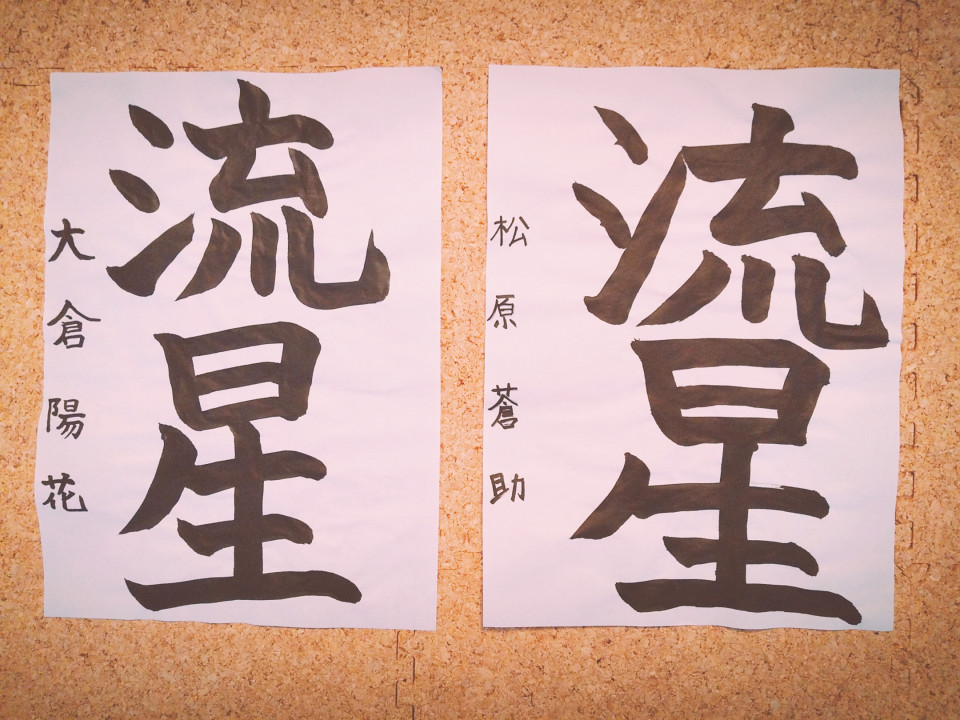 流星
大倉陽花
流星
松原蒼助